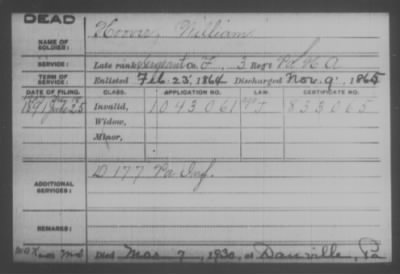 DEAD
NAME OF SOLDIER: Hoover, William
SERVICE: Late rank Sergeant Co. F, 3 Reg't Pa H A
TERM OF SERVICE: Enlisted Feb. 23, 1864 Discharged Nov. 9, 1865
DATE OF FILING. CLASS. APPLICATION NO. LAW. CERTIFICATE NO.
1891 Invalid, 1043061 J 833065
Widow,
Minor,
ADDITIONAL SERVICES: D 177 Pa Inf.
REMARKS:
Died Mar. 7, 1930, at Danville, Pa